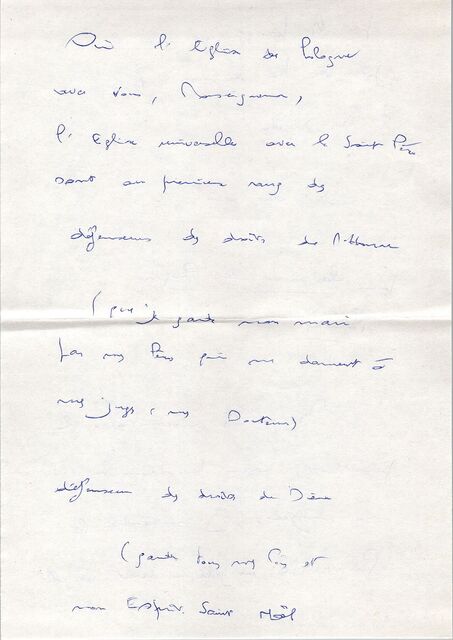 Oui l'Eglise de Pologne
avec vous, Monseigneur,
l'Eglise universelle avec le Saint Père
sont au premier rang des
défenseurs des droits de l'Homme
(que je garde mon mari
mes Pères qui me donnent à
mes juges (mes Docteurs)
défenseur des droits de Dieu
(garde tous mes et
mon Esprit Saint Noël